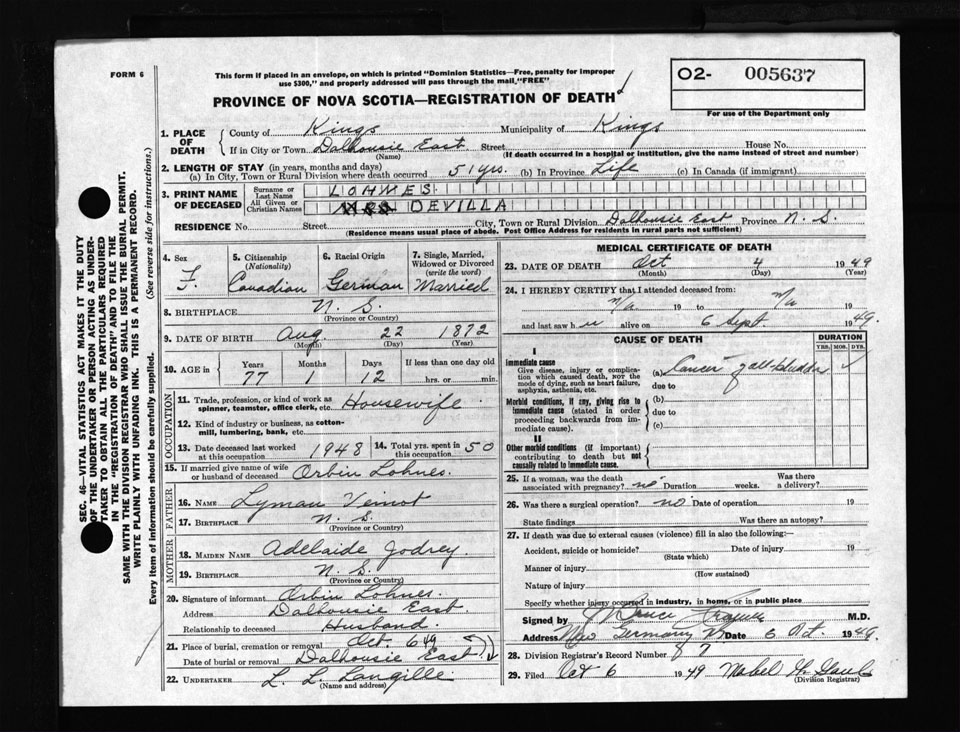 FORM 6
This form if placed in an envelope, on which is printed "Dominion Statistics—Free, penalty for improper
use $300," and properly addressed will pass through the mail, "FREE"
O2- 005637
For use of the Department only
PROVINCE OF NOVA SCOTIA—REGISTRATION OF DEATH
1. PLACE OF DEATH { County of Kings Municipality of Kings
If in City or Town Dalhousie East Street House No.
(Name) (If death occurred in a hospital or institution, give the name instead of street and number)
2. LENGTH OF STAY (in years, months and days)
(a) In City, Town or Rural Division where death occurred 51 yrs. (b) In Province Life (c) In Canada (if immigrant)
3. PRINT NAME OF DECEASED { Surname or Last Name LOHNES
All Given or Christian Names MRS DEVILLA
RESIDENCE No. Street City, Town or Rural Division Dalhousie East Province N. S.
(Residence means usual place of abode. Post Office Address for residents in rural parts not sufficient)
4. Sex F.
5. Citizenship (Nationality) Canadian
6. Racial Origin German
7. Single, Married, Widowed or Divorced (write the word) Married
8. BIRTHPLACE N. S.
(Province or Country)
9. DATE OF BIRTH Aug. 22 1872
(Month) (Day) (Year)
10. AGE in { Years 77 Months 1 Days 12 If less than one day old hrs. or min.
OCCUPATION
11. Trade, profession, or kind of work as spinner, teamster, office clerk, etc. Housewife
12. Kind of industry or business, as cotton-mill, lumbering, bank, etc.
13. Date deceased last worked at this occupation 1948 14. Total yrs. spent in this occupation 50
15. If married give name of wife or husband of deceased Orbin Lohnes.
FATHER
16. NAME Lyman Veinot
17. BIRTHPLACE N. S.
(Province or Country)
MOTHER
18. MAIDEN NAME Adelaide Godrey.
19. BIRTHPLACE N. S.
(Province or Country)
20. Signature of informant Orbin Lohnes.
Address Dalhousie East.
Relationship to deceased Husband.
21. Place of burial, cremation or removal Oct. 6 49
Date of burial or removal Dalhousie East
22. UNDERTAKER L. L. Langille.
(Name and address)
MEDICAL CERTIFICATE OF DEATH
23. DATE OF DEATH Oct 4 1949
(Month) (Day) (Year)
24. I HEREBY CERTIFY that I attended deceased from:
n/a 19 to n/a 19
and last saw her alive on 6 Sept. 1949.
CAUSE OF DEATH
DURATION
YRS. MOS. DYS.
I
Immediate cause
Give disease, injury or complication which caused death, NOT the mode of dying, such as heart failure, asphyxia, asthenia, etc.
(a) Cancer gall-bladder
due to
Morbid conditions, if any, giving rise to immediate cause (stated in order proceeding backwards from immediate cause).
(b)
due to
(c)
II
Other morbid conditions (if important) contributing to death but not causally related to immediate cause.
25. If a woman, was the death associated with pregnancy? no Duration weeks. Was there a delivery?
26. Was there a surgical operation? no Date of operation 19
State findings Was there an autopsy?
27. If death was due to external causes (violence) fill in also the following:—
Accident, suicide or homicide? Date of injury 19
(State which)
Manner of injury
(How sustained)
Nature of injury
Specify whether injury occurred in industry, in home, or in public place
Signed by M.D.
Address New Germany NS Date 6 Oct. 1949.
28. Division Registrar's Record Number 87
29. Filed Oct 6 1949 Mabel
(Division Registrar)
SEC. 46—VITAL STATISTICS ACT MAKES IT THE DUTY
OF THE UNDERTAKER OR PERSON ACTING AS UNDER-
TAKER TO OBTAIN ALL THE PARTICULARS REQUIRED
IN THE "REGISTRATION OF DEATH" AND TO FILE THE
SAME WITH THE DIVISION REGISTRAR WHO SHALL ISSUE THE BURIAL PERMIT.
WRITE PLAINLY WITH UNFADING INK. THIS IS A PERMANENT RECORD.
Every item of information should be carefully supplied. (See reverse side for instructions.)